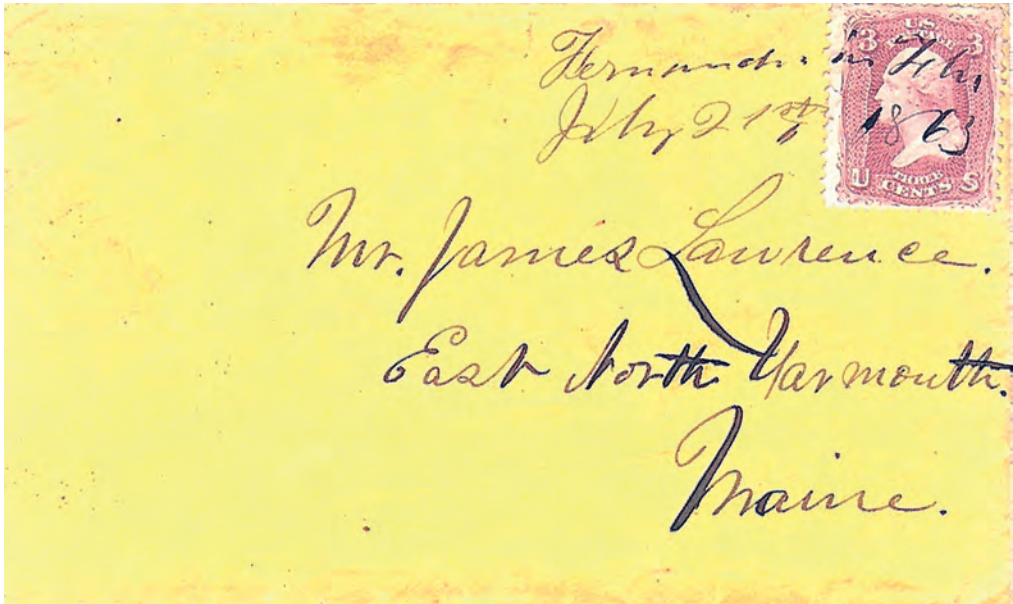 Fernandina Fla,
July 21st 1863
3 U.S. 3
POSTAGE
U THREE S
CENTS
Mr. James Lawrence.
East North Yarmouth.
Maine.